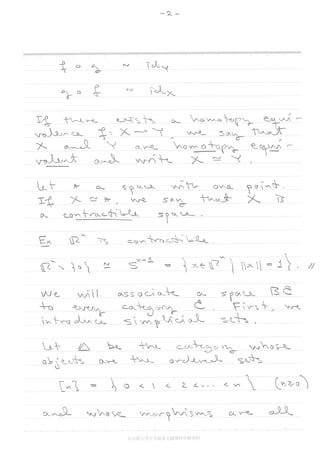 - 2 -
f ∘ g ~ id_Y
g ∘ f ~ id_X
If there exists a homotopy equi-
valence f: X → Y, we say that
X and Y are homotopy equi-
valent and write X ≃ Y.
Let * a space with one point.
If X ≃ *, we say that X is
a contractible space.
Ex ℝⁿ is contractible.
ℝⁿ \ {0} ≃ Sⁿ⁻¹ = {x ∈ ℝⁿ | ||x|| = 1}. //
We will associate a space BC
to every category C. First, we
introduce simplicial sets.
Let Δ be the category whose
objects are the ordered sets
[n] = {0 < 1 < 2 < ... < n} (n ≥ 0)
and whose morphisms are all